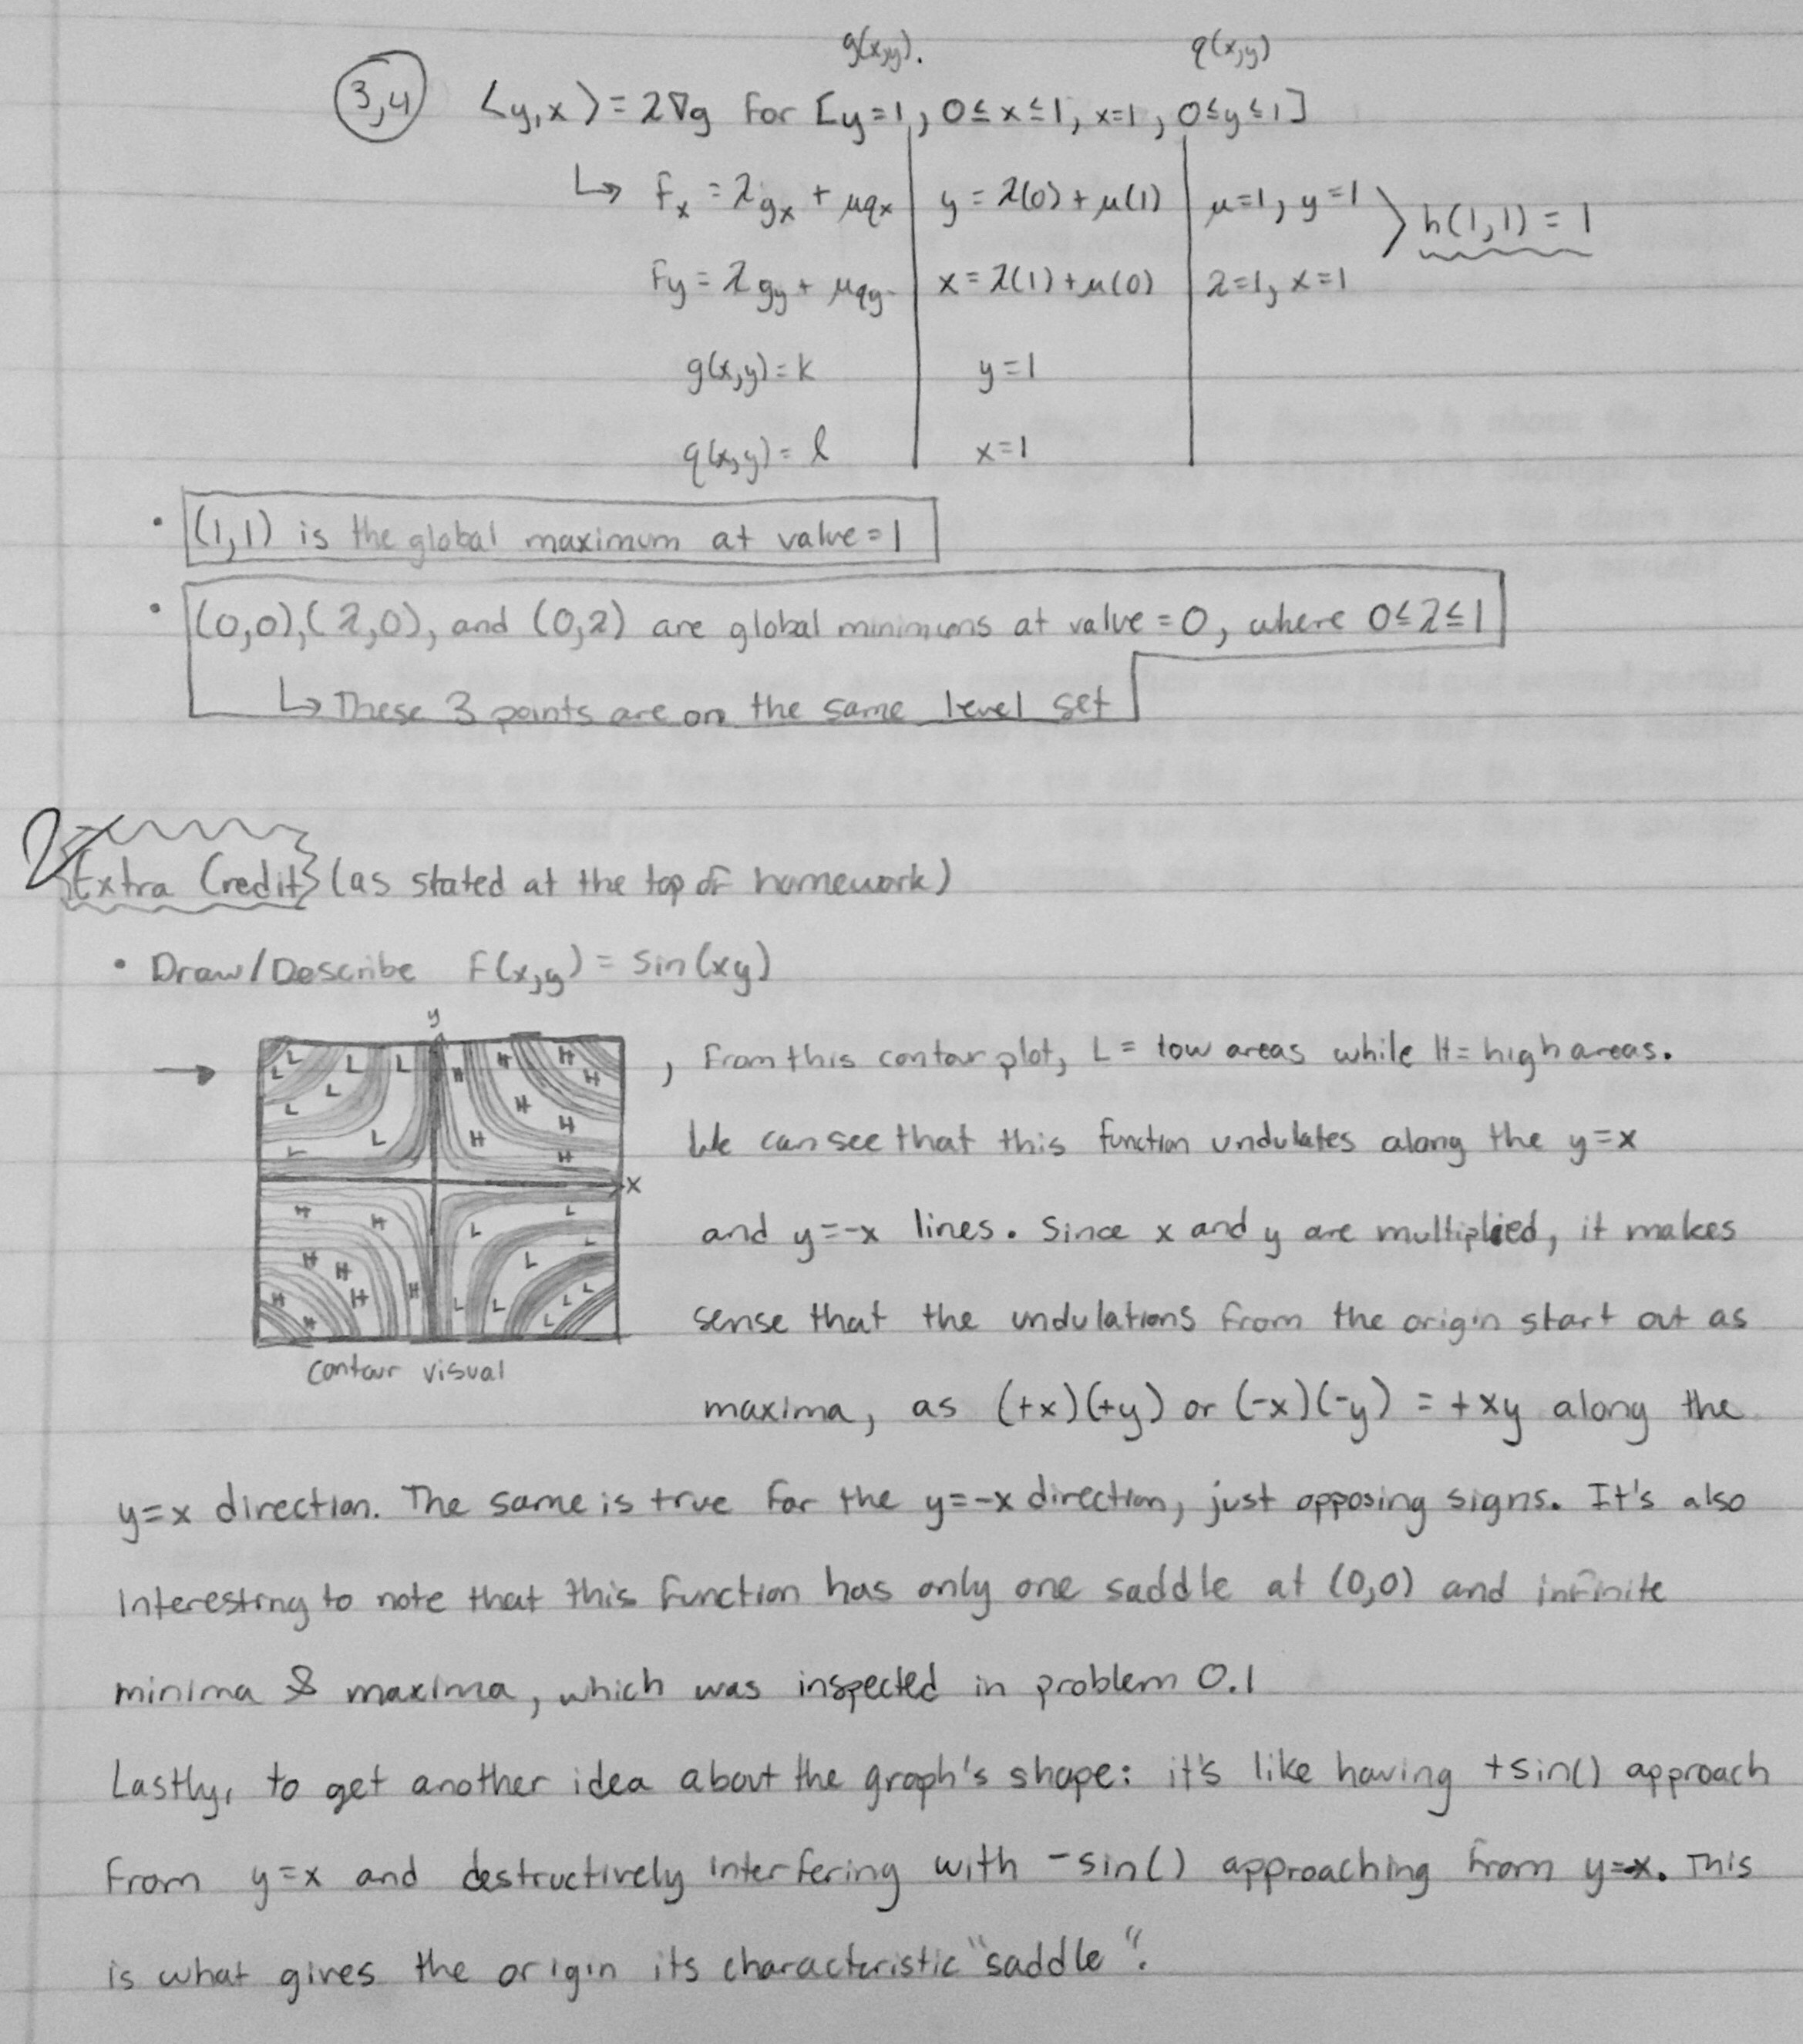 g(x,y). q(x,y)
3,4 <y,x> = λ∇g for [y=1, 0≤x≤1, x=1, 0≤y≤1]
↳ Fx = λgx + μqx y = λ(0) + μ(1) μ=1, y=1 > h(1,1) = 1
Fy = λgy + μqy x = λ(1) + μ(0) λ=1, x=1
g(x,y) = k y=1
q(x,y) = l x=1
• (1,1) is the global maximum at value = 1
• (0,0), (λ,0), and (0,λ) are global minimums at value = 0, where 0≤λ≤1
↳ These 3 points are on the same level set
Extra Credit (as stated at the top of homework)
• Draw/Describe F(x,y) = sin(xy)
y
→ L L L H H H , From this contour plot, L = low areas while H = high areas.
L L H H
L L H H We can see that this function undulates along the y=x
L H
x
H H L L L and y=-x lines. Since x and y are multiplied, it makes
H H L
H H H L L L L sense that the undulations from the origin start out as
H L
contour visual
maxima, as (+x)(+y) or (-x)(-y) = +xy along the
y=x direction. The same is true for the y=-x direction, just opposing signs. It's also
interesting to note that this function has only one saddle at (0,0) and infinite
minima & maxima, which was inspected in problem 0.1
Lastly, to get another idea about the graph's shape: it's like having +sin() approach
from y=x and destructively interfering with -sin() approaching from y=-x. This
is what gives the origin its characteristic "saddle".